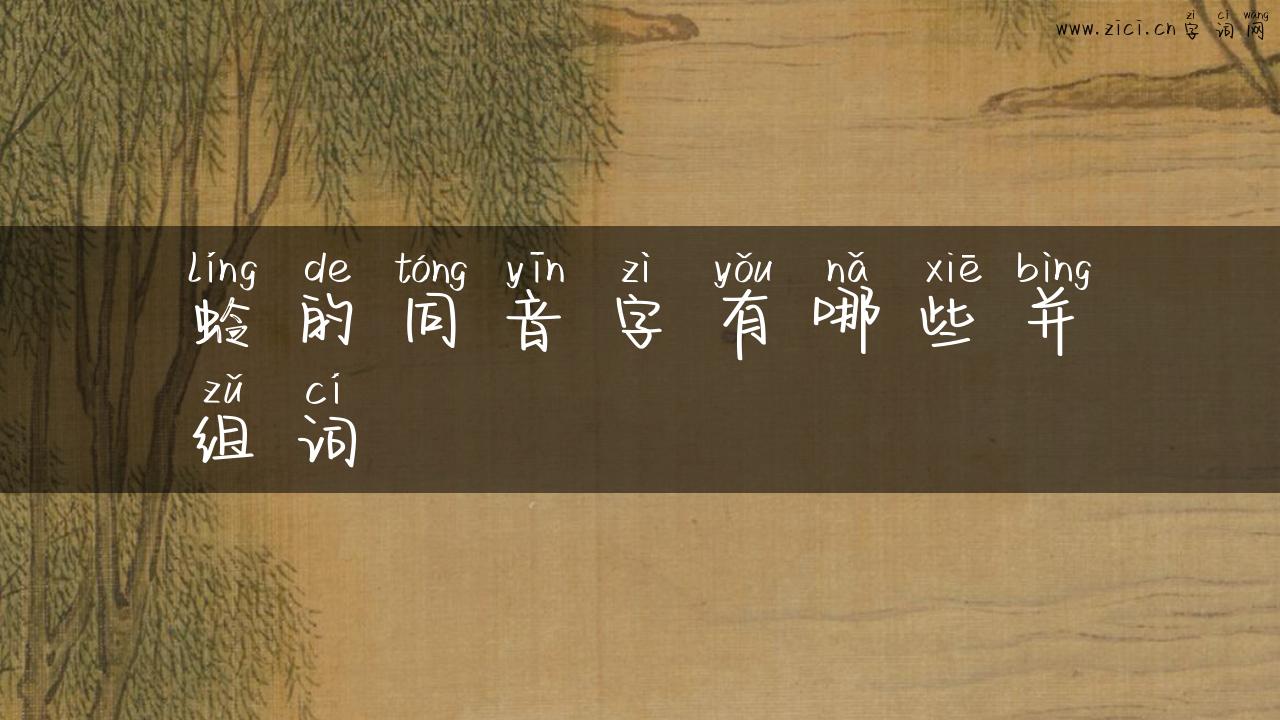 zì cí wǎng
www.zici.cn字词网
líng de tóng yīn zì yǒu nǎ xiē bìng
蛉的同音字有哪些并
zǔ cí
组词